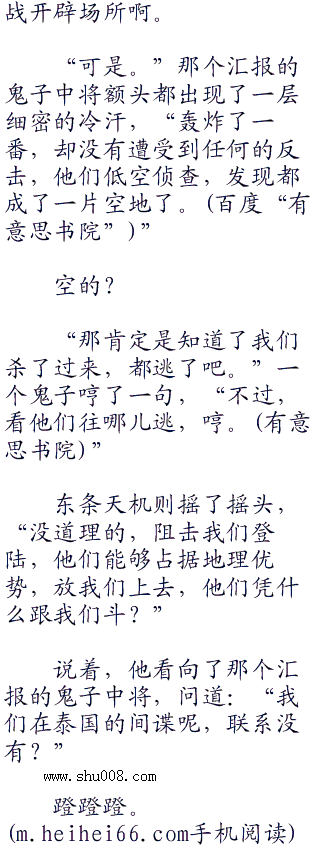 战开辟场所啊。
“可是。”那个汇报的
鬼子中将额头都出现了一层
细密的冷汗，“轰炸了一
番，却没有遭受到任何的反
击，他们低空侦查，发现都
成了一片空地了。(百度“有
意思书院”)”
空的？
“那肯定是知道了我们
杀了过来，都逃了吧。”一
个鬼子哼了一句，“不过，
看他们往哪儿逃，哼。(有意
思书院)”
东条天机则摇了摇头，
“没道理的，阻击我们登
陆，他们能够占据地理优
势，放我们上去，他们凭什
么跟我们斗？”
说着，他看向了那个汇
报的鬼子中将，问道：“我
们在泰国的间谍呢，联系没
有？”
www.shu008.com
蹬蹬蹬。
(m.heihei66.com手机阅读)